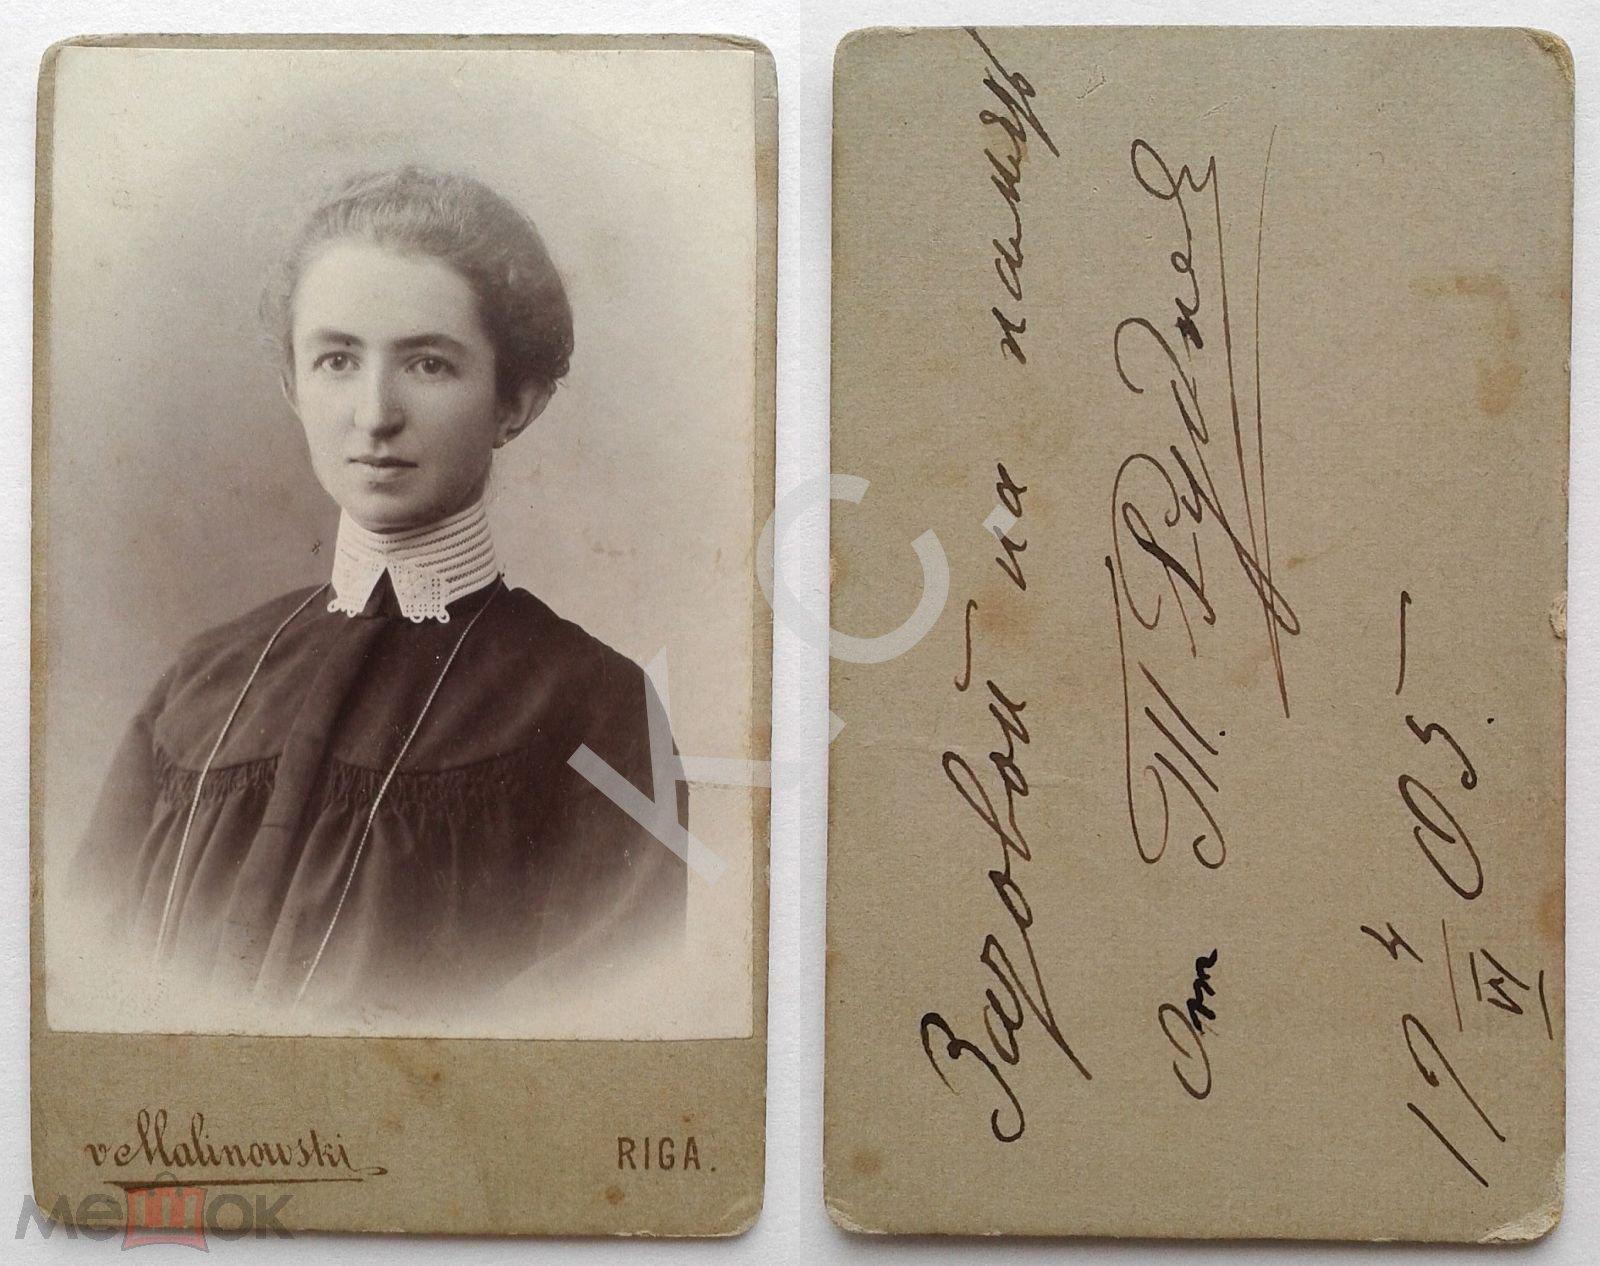 v. Malinowski
RIGA.
Заровой на память
От Т. Рудне
19 4/VI 05
мешок
К.С.